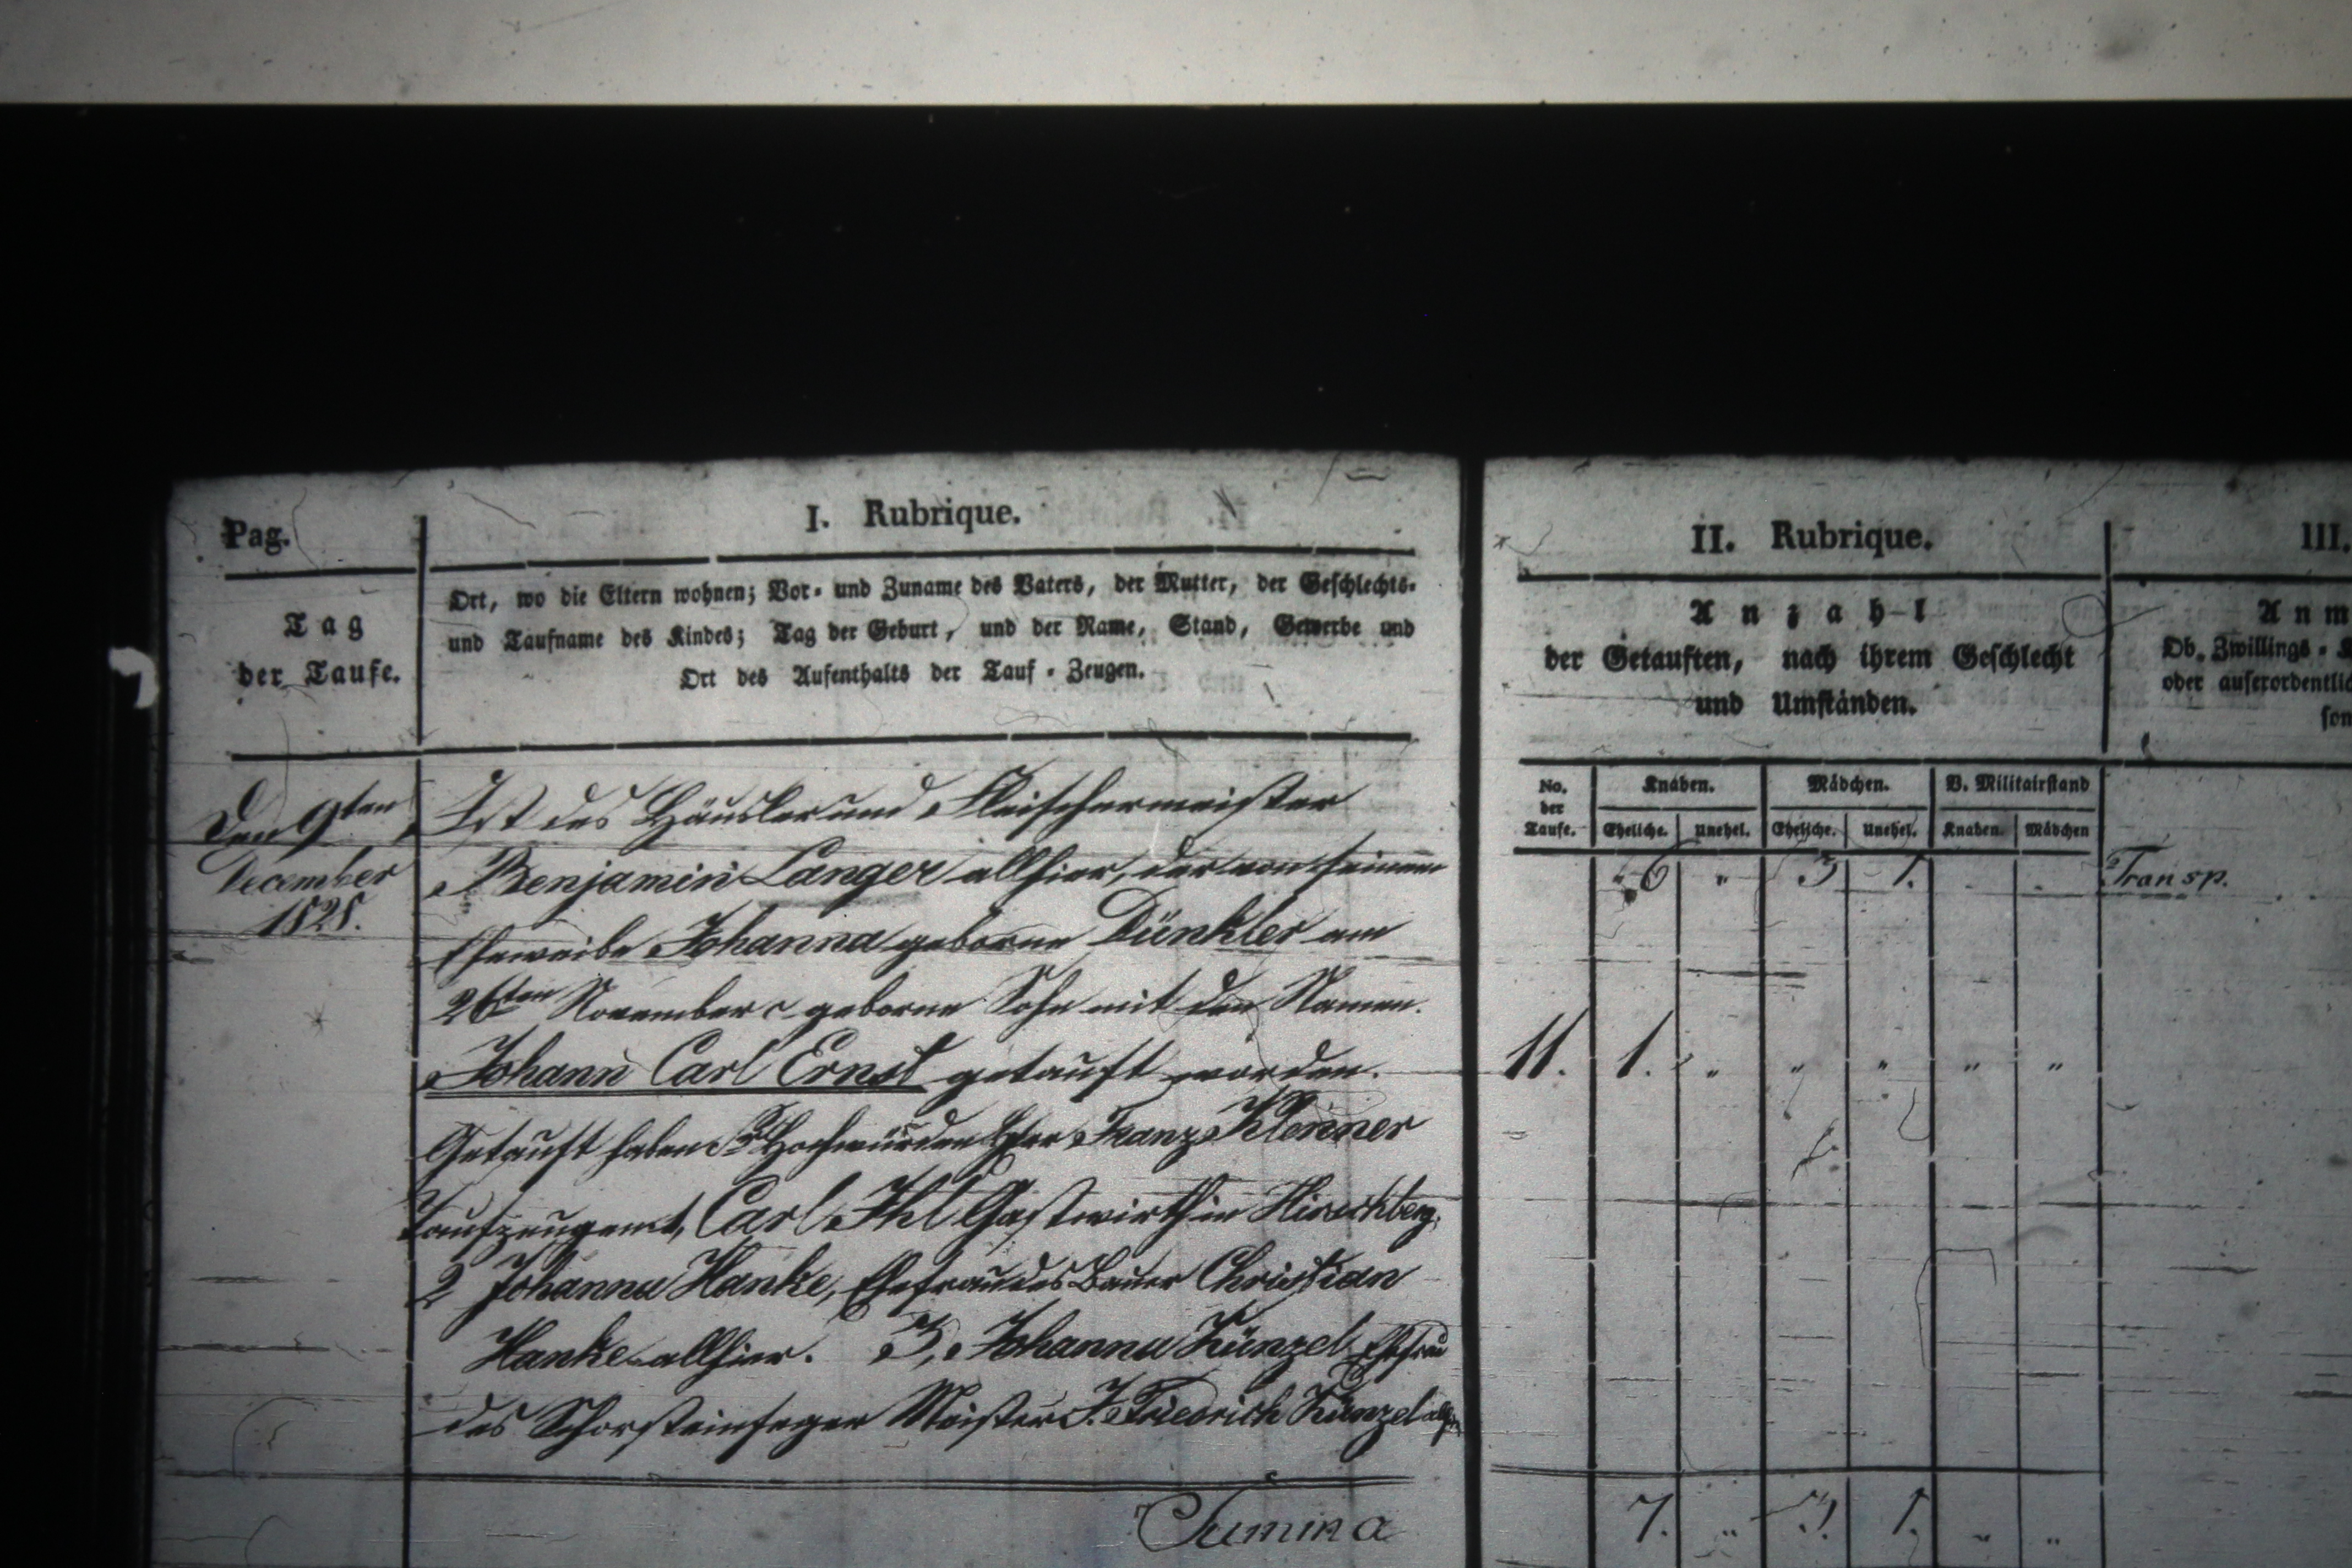 Pag.
I. Rubrique.
Tag
der Taufe.
Ort, wo die Eltern wohnen; Vor- und Zuname des Vaters, der Mutter, der Geschlechts-
und Taufname des Kindes; Tag der Geburt, und der Name, Stand, Gewerbe und
Ort des Aufenthalts der Tauf-Zeugen.
Den 9ten
December
1828.
Ist des Häusler und Fleischermeister
Benjamin Langer allhier, der von seinem
Eheweibe Johanna geborne Dünkler am
26ten November c geborne Sohn mit den Namen.
Johann Carl Ernst getauft worden.
Getauft haben Hochwürden Herr Franz Klenner
Taufzeugen Carl Ihl Gastwirth in Hirschberg,
2 Johanna Hanke, Ehefrau des Bauer Christian
Hanke allhier. 3, Johanna Künzel Ehefrau
des Schorsteinfeger Meister J. Friedrich Künzel allhier
Summa
II. Rubrique.
Anzahl
der Getauften, nach ihrem Geschlecht
und Umständen.
No. der Taufe. Knaben. Mädchen. V. Militairstand
Eheliche. Unehel. Eheliche. Unehel. Knaben. Mädchen
6 " 3 1. Transp.
11. 1. " " " " "
7. " 3. 1. " "
III.
Anm
Ob. Zwillings-
oder auserordentlic
son